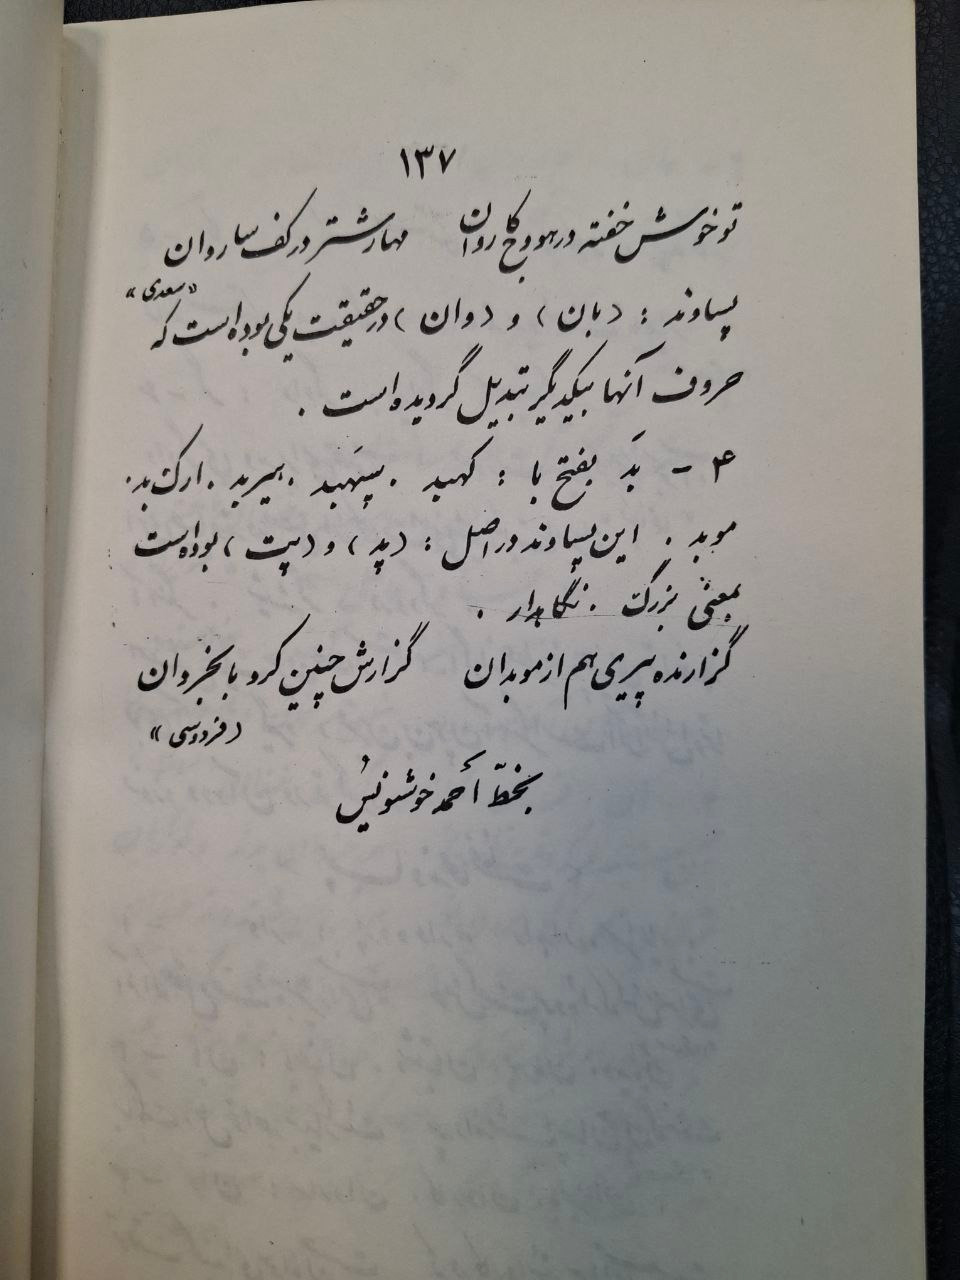 ۱۳۷
تو خوش خفته در هودج کاروان مهار شتر در کف ساروان
«سعدی»
پساوند : (بان) و (وان) در حقیقت یکی بوده است که
حروف آنها بیکدیگر تبدیل گردیده است .
۴ - بَد بفتح با : کهبد . سپَهبد . هیربد . ارک بد .
موبد . این پساوند در اصل : (پد) و (پت) بوده است
بمعنی بزرگ . نگاهدار .
گزارنده پیری هم از موبدان گزارش چنین کرد با بخردان
(فردوسی»
بخطّ أحمد خوشنویس